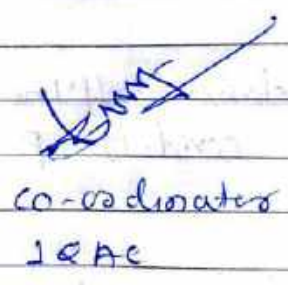 co-ordinator
IQAC